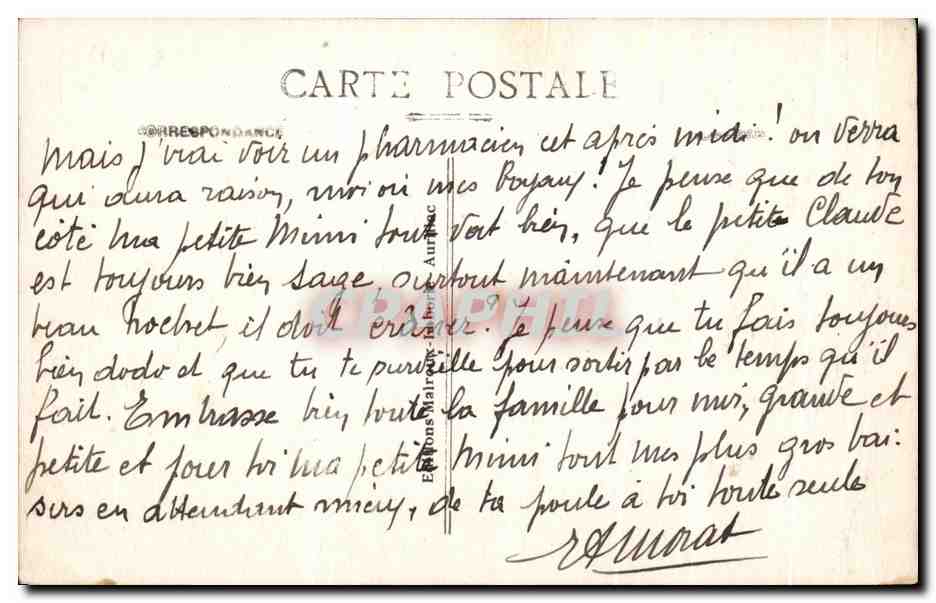 CARTE POSTALE
CORRESPONDANCE
Mais j'irai voir un pharmacien cet après midi! on verra
qui aura raison, moi ou mes boyaux! Je pense que de ton
côté ma petite Mimi tout va bien, que le petit Claude
est toujours bien sage, surtout maintenant qu'il a un
beau, il doit crâner? Je pense que tu fais toujours
bien dodo et que tu te surveille pour sortir par le temps qu'il
fait. Embrasse bien toute la famille pour moi, grande et
petite et pour toi ma petite Mimi tout mes plus gros bai-
sers en attendant mieux, de ta poule à toi toute seule
Editions Malroux-Laborie Aurillac
GRAPHTI